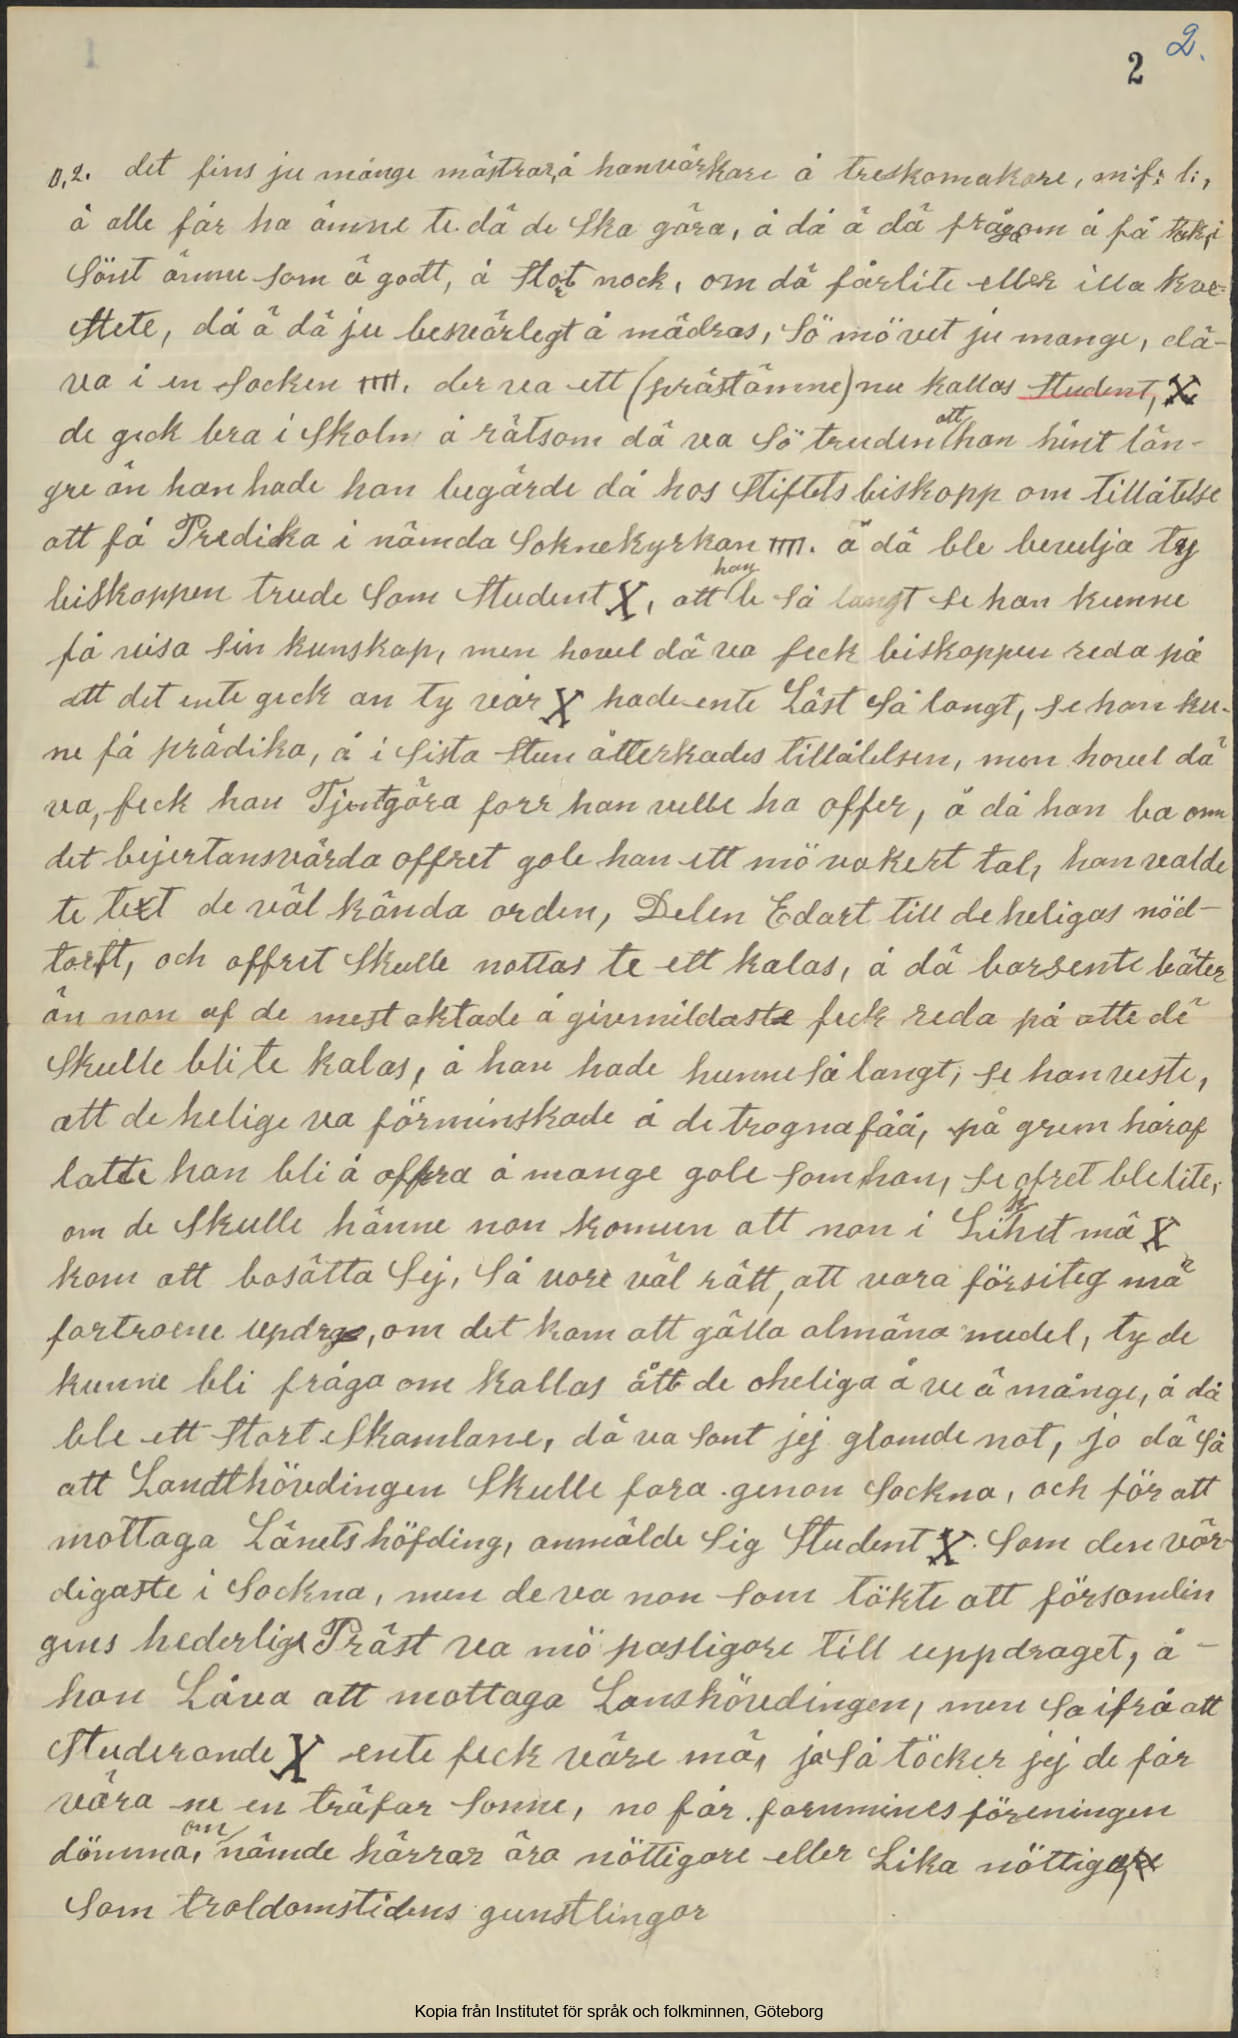 2 2.
0,2. det fins ju månge mästrar, å hanvärkare å treskomakare, m:f: l:,
å alle får ha ämne te. dä de ska göra, å då ä dä fråga om å få tak i
sönt ämne som ä godt, å stort nock, om dä får lite eller illa kve-
stete, då ä dä ju besvärlegt å mädras, sö mö vet ju mange, dä-
va i en socken ııııı. der va ett (prästämne) nu kallas student, X
de geck bra i skoln å råtsom dä va sö truden att han hint län-
gre än han hade han begärde då hos stiftets biskopp om tillåtelse
att få Predika i nämda Soknekyrkan ııııı. å dä ble bevelja ty
biskoppen trude som student X, att han le så langt se han kunne
få visa sin kunskap, men hovel dä va feck biskoppen reda på
att det ente geck an ty vår X hade ente Läst så langt, se han ku-
ne få prädika, å i sista stun åtterkades tillåtelsen, men hovel dä
va, feck han Tjentgöra forr han velle ha offer, å då han ba om
det bejertansvärda offret gole han ett mö vakert tal, han valde
te text de väl kända orden, Delen Edart till de heligas nöd-
torft, och offret skulle nottas te ett kalas, å dä bars ente bäter
än non af de mest aktade å givmildaste feck reda på atte dé
skulle bli te kalas, å han hade hunne så langt, se han veste,
att de helige va förminskade å de trogna fåå, på grun häraf
latte han bli å offra å mange gole som han, se ofret ble lite,
om de skulle hänne non komun att non i Likhet mä X
kom att bosätta sej, så vore väl rätt, att vara försiteg mä
fortroene updrg, om det kom att gälla almäna medel, ty de
kunne bli fråga om kallas ått de oheliga å ve ä månge, å då
ble ett stort skamlane, då va sont jej glomde not, jo dä så
att Landthövdingen skulle fara genon sockna, och för att
mottaga Länets höfding, anmälde sig student X. som den vär-
digaste i sockna, men de va non som tökte att församlin
gens hederlige Präst va mö pasligare till uppdraget, å -
han Låva att mottaga Lanshövdingen, men sa ifrå att
studerande X ente feck väre mä, ja så töcker jej de får
våra ne en träfar sonne, no får fornminesföreningen
dömma, om nämde härrar ära nöttigare eller Lika nöttiga
som troldomstidens gunstlingar
Kopia från Institutet för språk och folkminnen, Göteborg